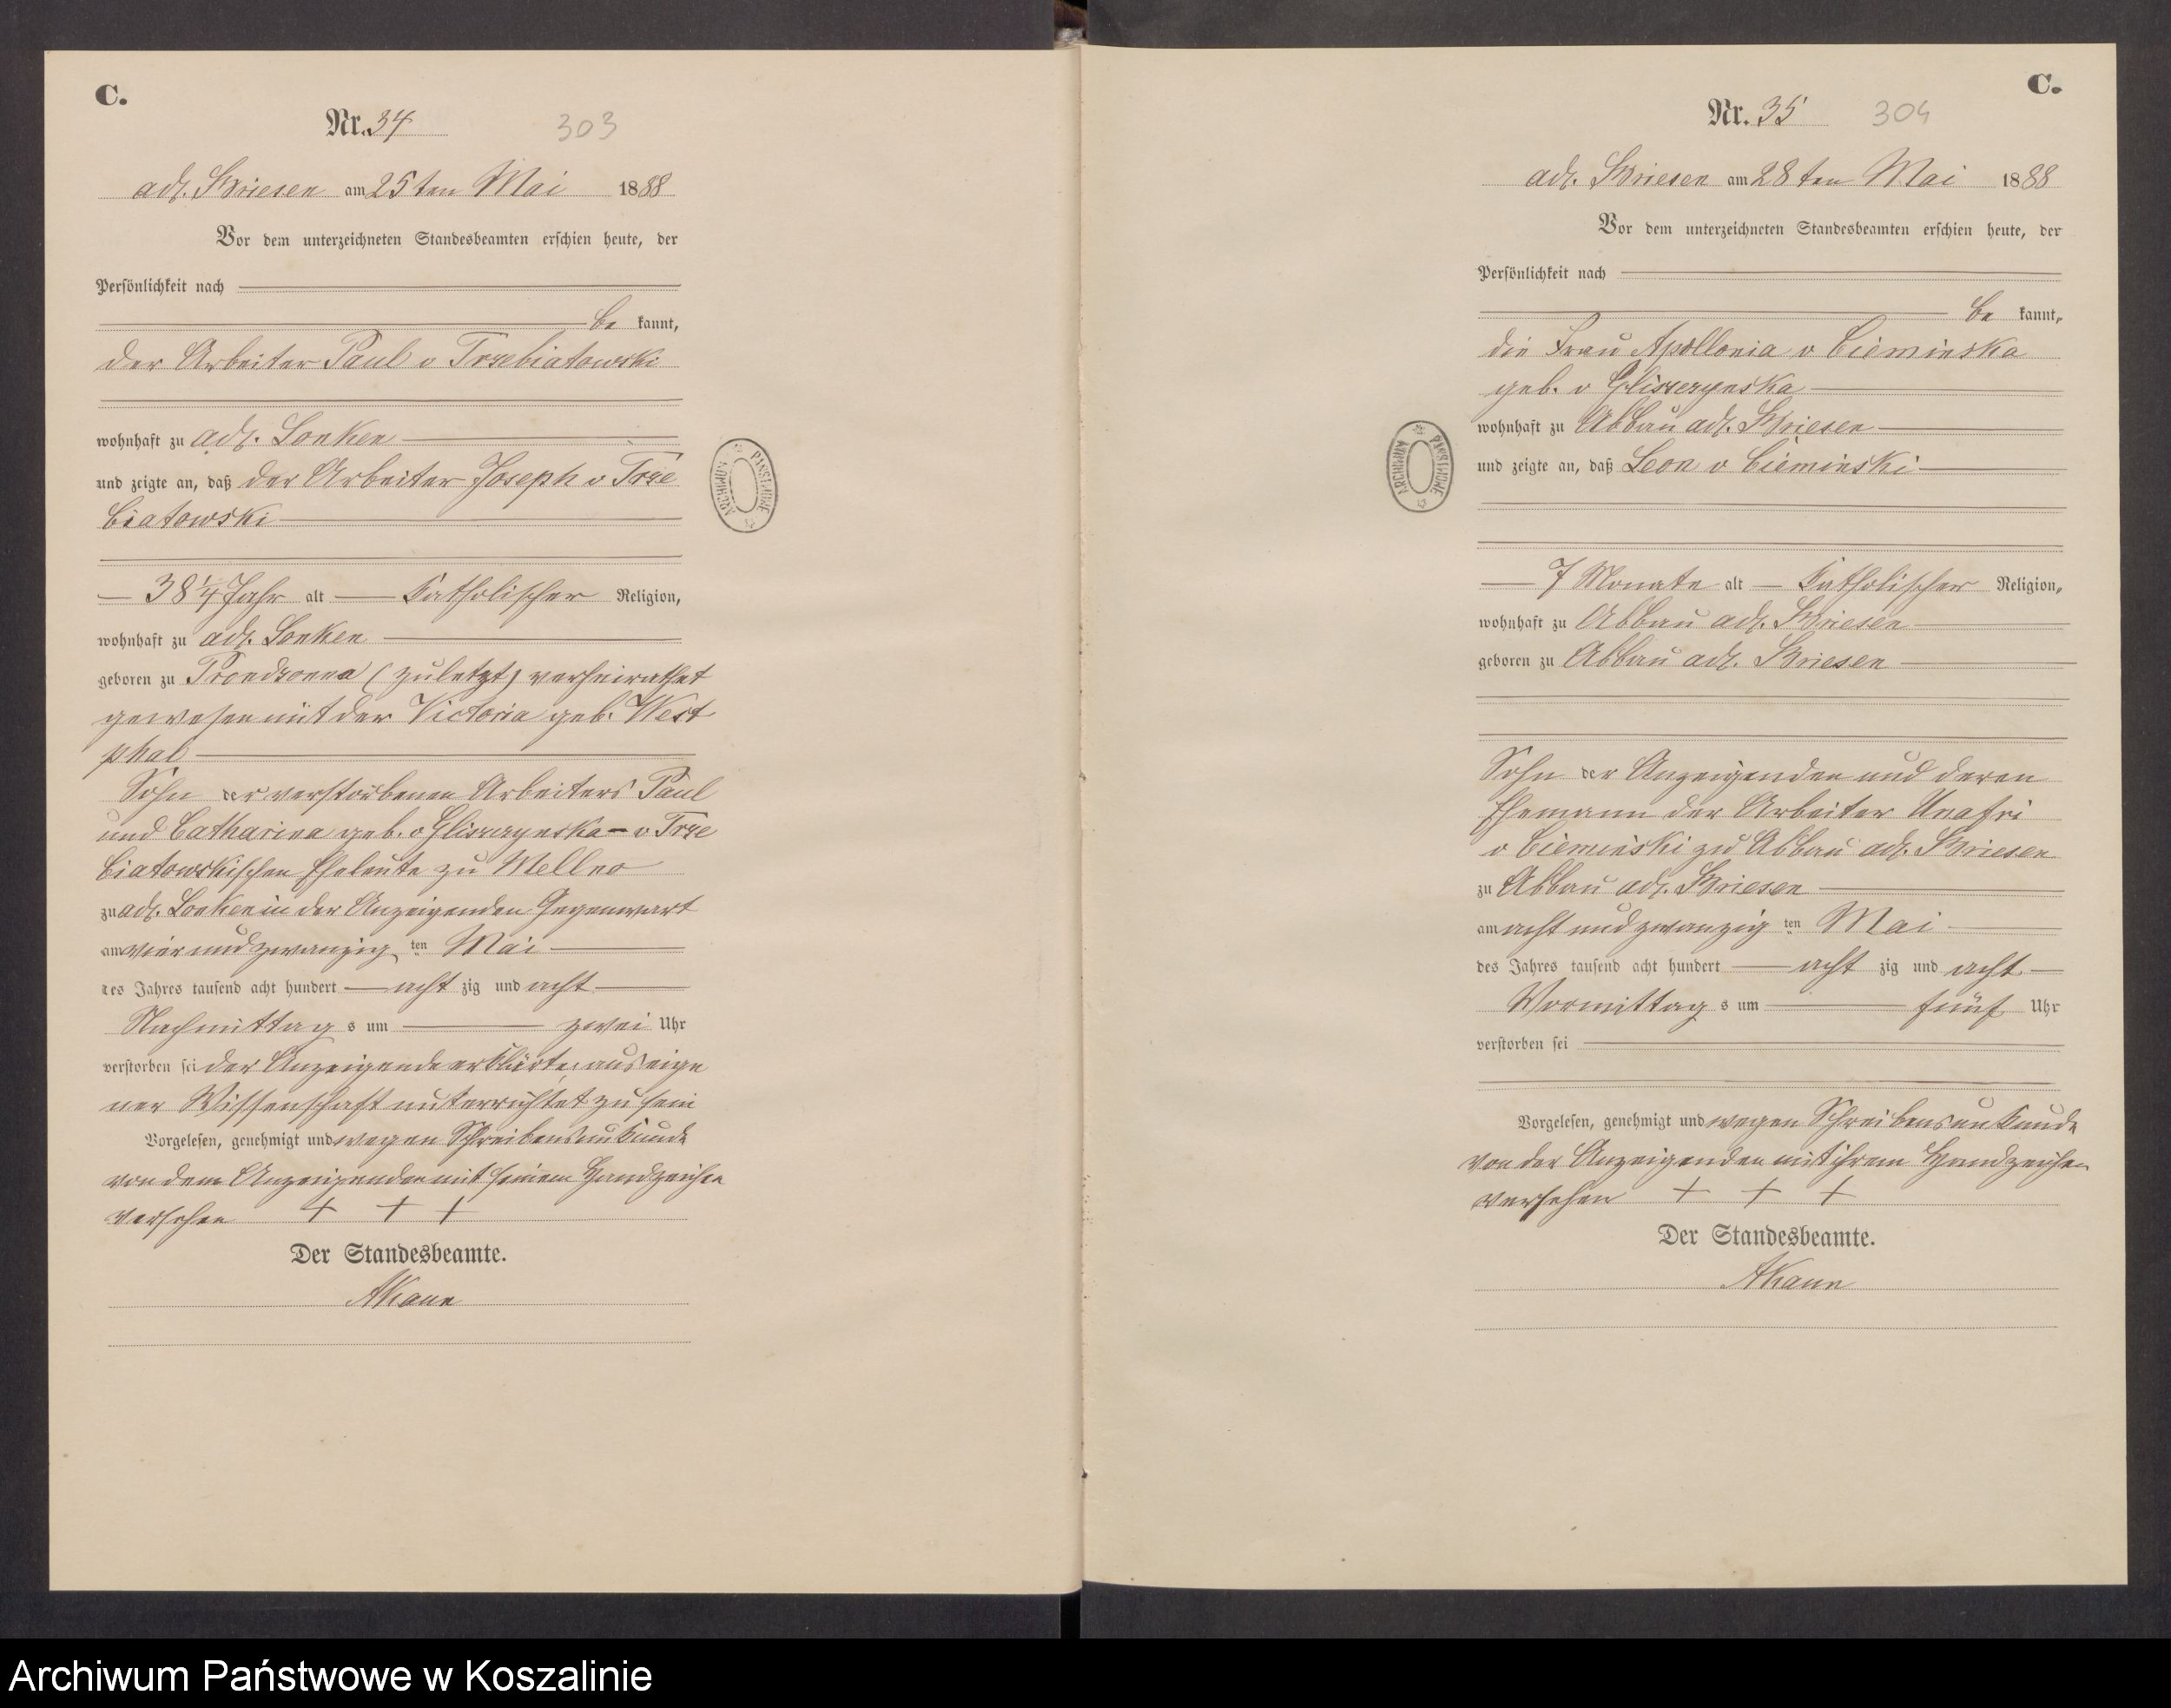 C.
Nr. 34 303
adl. Briesen am 25ten Mai 1888
Vor dem unterzeichneten Standesbeamten erschien heute, der
Persönlichkeit nach
be kannt,
der Arbeiter Paul v Trzebiatowski
wohnhaft zu adl. Lonken
und zeigte an, daß der Arbeiter Joseph v Trze
biatowski
38 1/4 Jahr alt Katholischer Religion,
wohnhaft zu adl. Lonken
geboren zu Prondzonna (zuletzt) verheirathet
gewesen mit der Victoria geb. West
phal
Sohn der verstorbenen Arbeiters Paul
und Catharina geb. v Gliszczynska - v Trze
biatowskischen Eheleute zu Mellno
zu adl. Lonken in der Anzeigenden Gegenwart
am vier und zwanzig ten Mai
des Jahres tausend acht hundert acht zig und acht
Nachmittag s um zwei Uhr
verstorben sei der Anzeigende erklärte, aus eige
ner Wissenschaft unterrichtet zu sein
Vorgelesen, genehmigt und wegen Schreibensunkunde
von dem Anzeigenden mit seinem Handzeichen
versehen + + +
Der Standesbeamte.
AKann
C.
Nr. 35 304
adl. Briesen am 28ten Mai 1888
Vor dem unterzeichneten Standesbeamten erschien heute, der
Persönlichkeit nach
be kannt,
die Frau Apollonia v Cieminska
geb. v Gliszczynska
wohnhaft zu Abbau adl. Briesen
und zeigte an, daß Leon v Cieminski
7 Monate alt Katholischer Religion,
wohnhaft zu Abbau adl. Briesen
geboren zu Abbau adl. Briesen
Sohn der Anzeigenden und deren
Ehemann der Arbeiter Unafri
v Cieminski zu Abbau adl. Briesen
zu Abbau adl. Briesen
am acht und zwanzig ten Mai
des Jahres tausend acht hundert acht zig und acht
Vormittag s um fünf Uhr
verstorben sei
Vorgelesen, genehmigt und wegen Schreibensunkunde
von der Anzeigenden mit ihrem Handzeichen
versehen + + +
Der Standesbeamte.
AKann
ARCHIWUM PAŃSTWOWE
ARCHIWUM PAŃSTWOWE
Archiwum Państwowe w Koszalinie